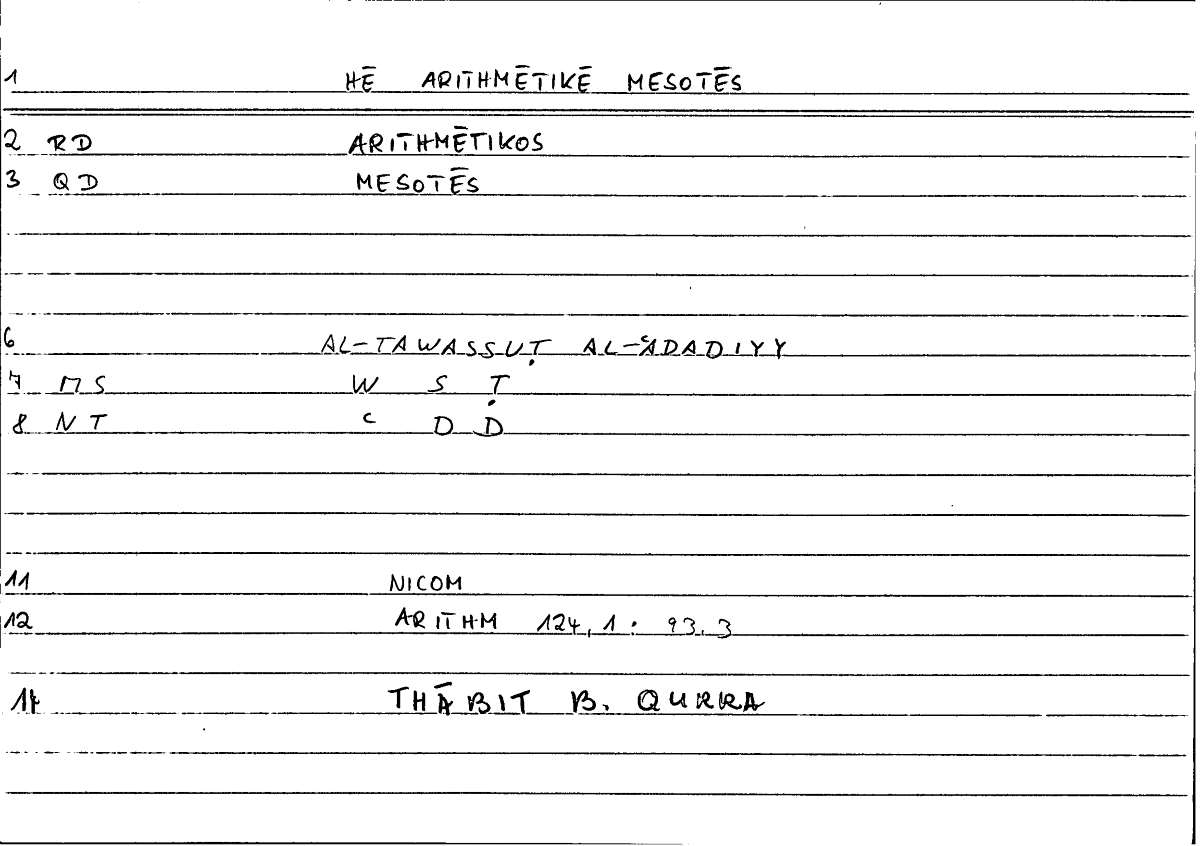 1 HĒ ARITHMĒTIKĒ MESOTĒS
2 RD ARITHMĒTIKOS
3 QD MESOTĒS
6 AL-TAWASSUṬ AL-ʿADADIYY
7 MS W S Ṭ
8 NT ʿ D D
11 NICOM
12 ARITHM 124,1 : 93.3
14 THĀBIT B. QURRA